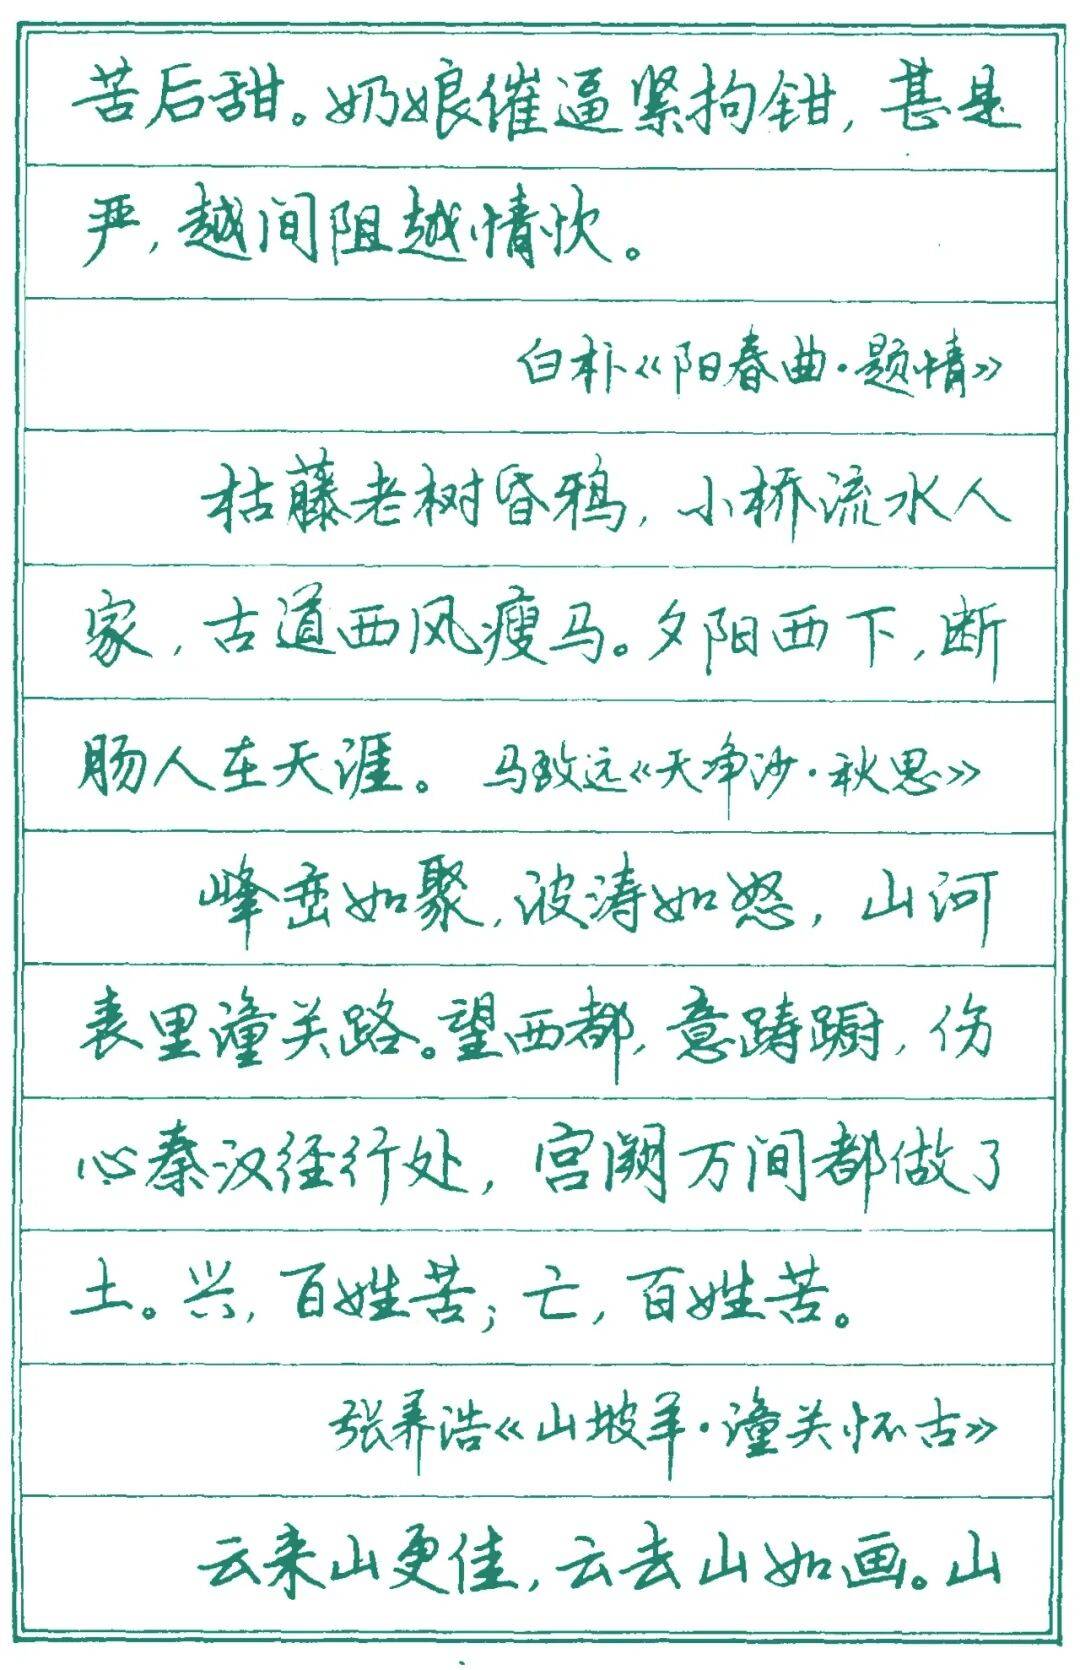 苦后甜。奶娘催逼紧拘钳，甚是
严，越间阻越情忺。
白朴《阳春曲·题情》
枯藤老树昏鸦，小桥流水人
家，古道西风瘦马。夕阳西下，断
肠人在天涯。 马致远《天净沙·秋思》
峰峦如聚，波涛如怒，山河
表里潼关路。望西都，意踌蹰，伤
心秦汉经行处，宫阙万间都做了
土。兴，百姓苦；亡，百姓苦。
张养浩《山坡羊·潼关怀古》
云来山更佳，云去山如画。山